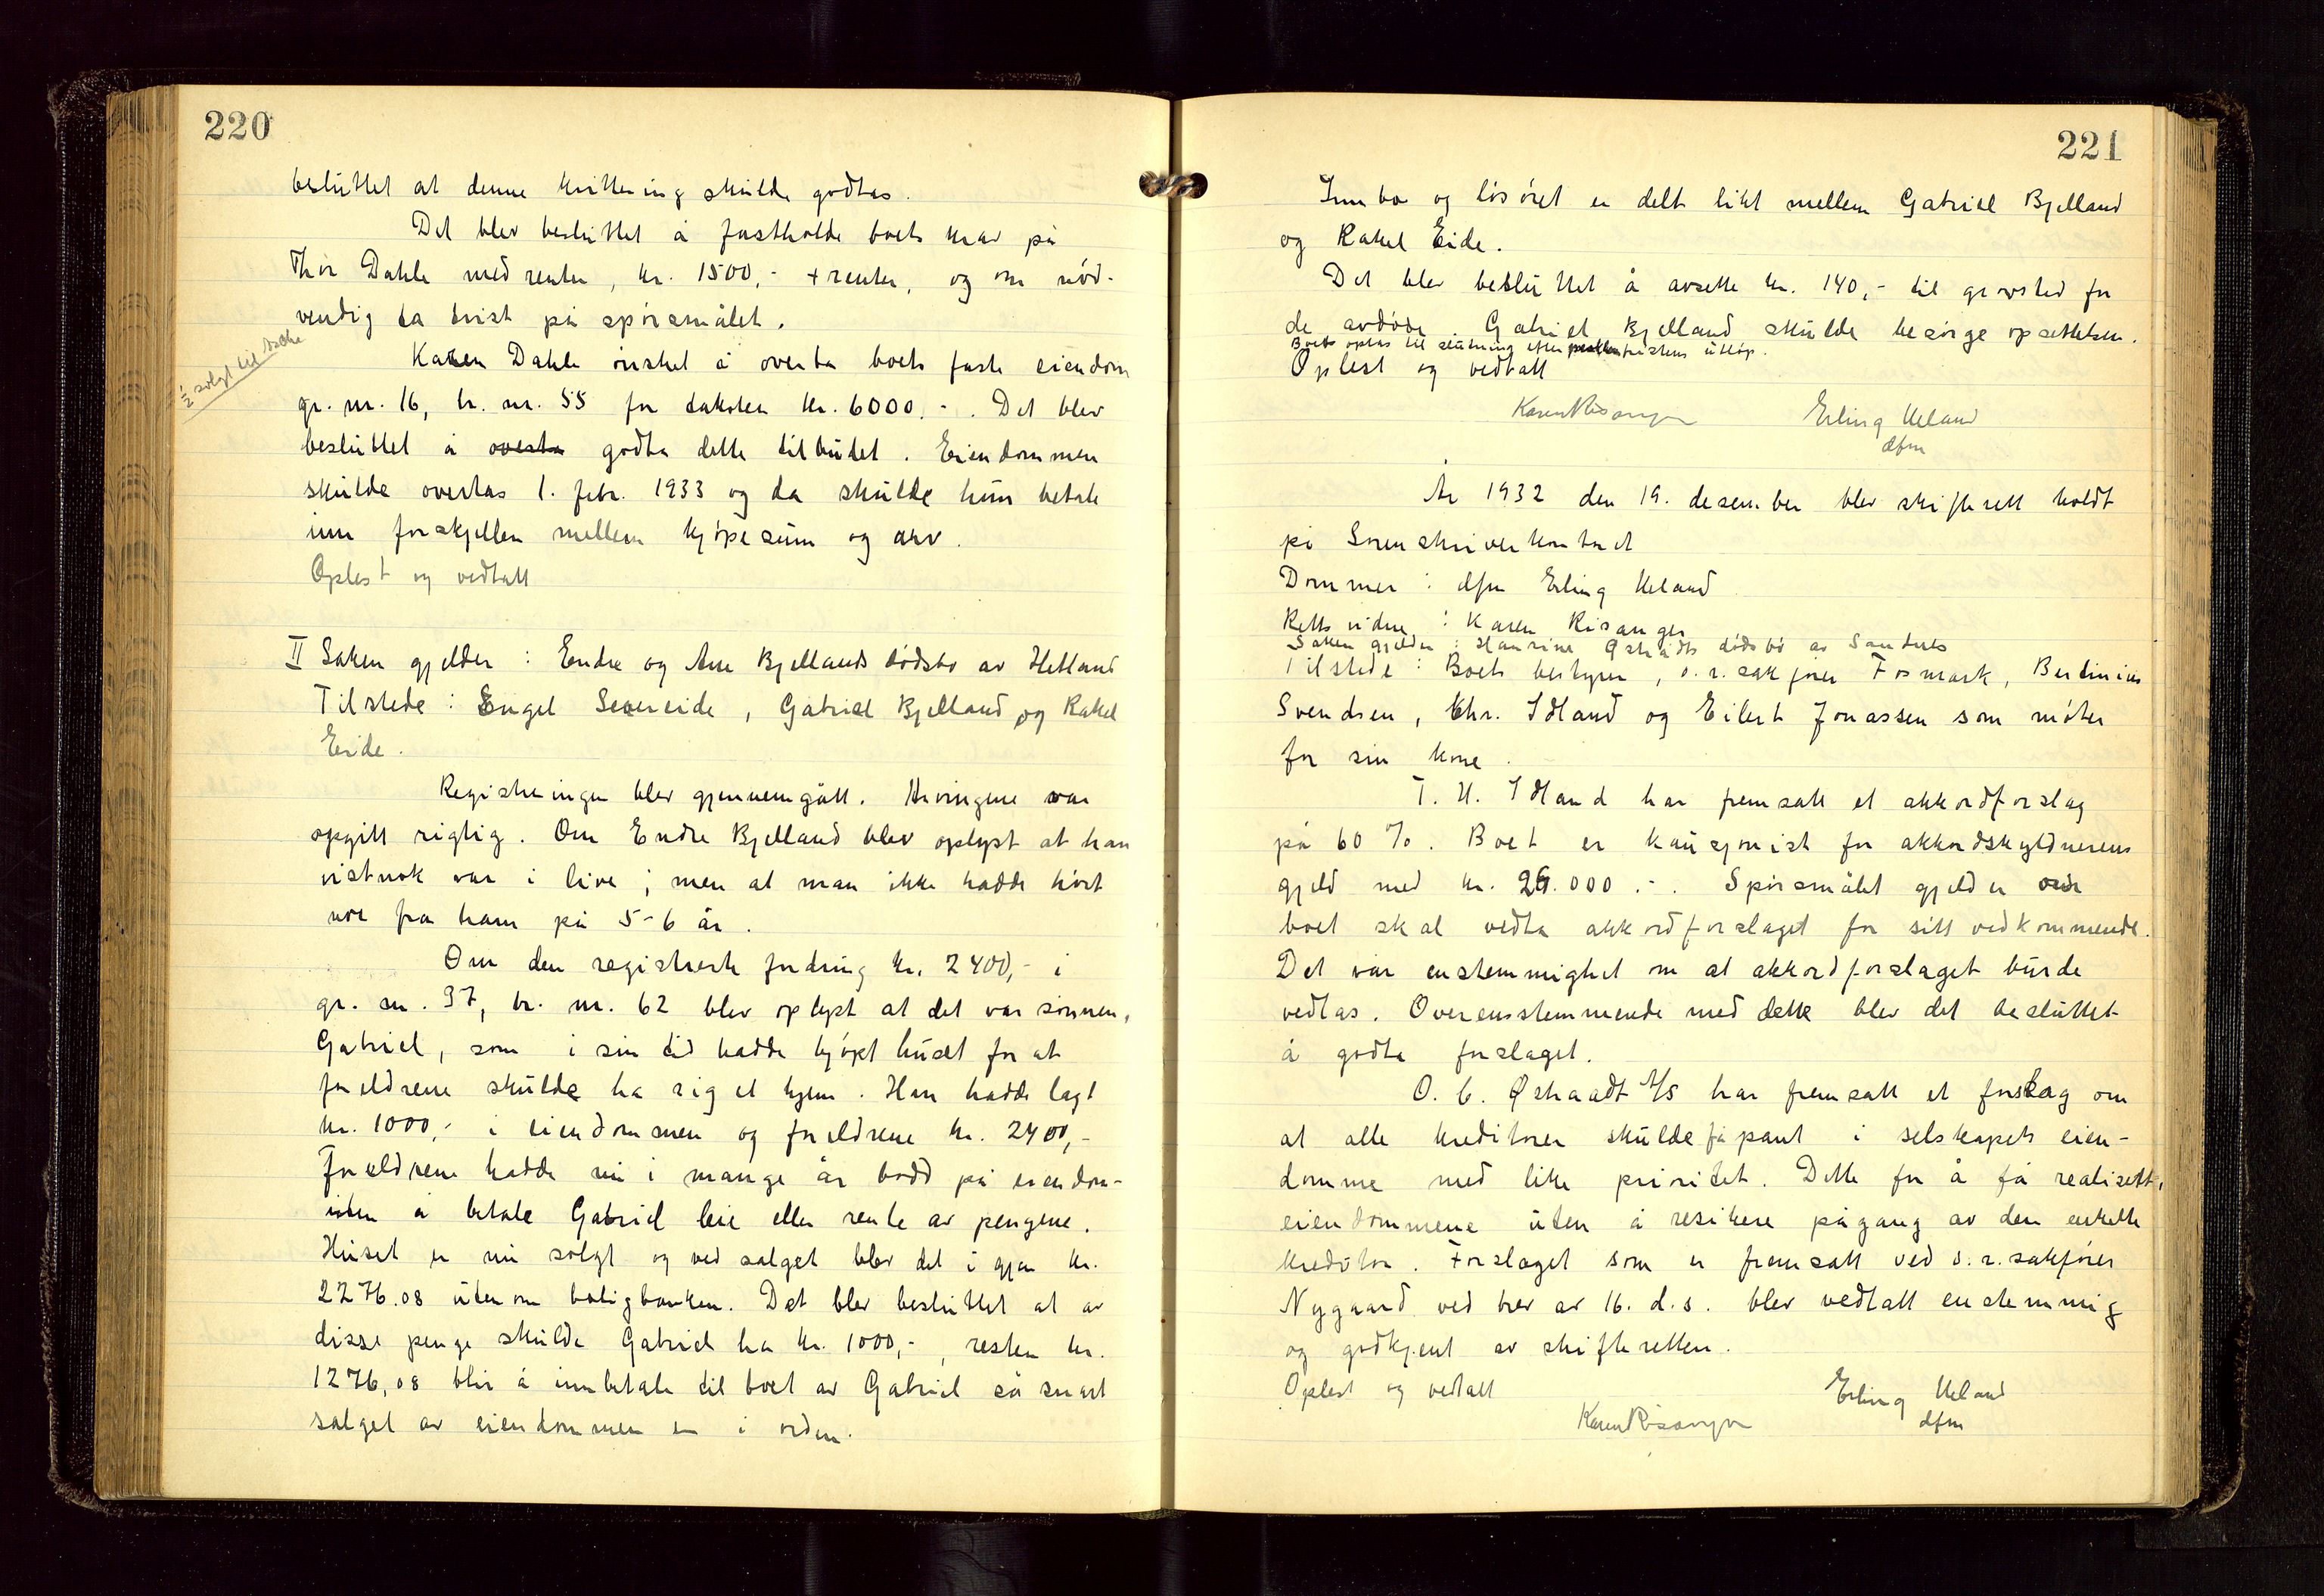 220
besluttet at denne kvittering skulde godtas.
Det blev besluttet å fastholde boets krav på
Thor Dahle med renter, kr. 1500,- + renter, og om nød-
vendig ta tvist på spørsmålet.
½ solgt til Dahle
Karen Dahle ønsket å overta boets faste eiendom
gr. nr. 16, br. nr. 55 for taksten kr. 6000.-. Det blev
besluttet å overta godta dette tilbudet. Eiendommen
skulde overtas 1. febr. 1933 og da skulde hun betale
inn forskjellen mellem kjøpesum og arv.
Oplest og vedtatt
II Saken gjelder: Endre og Ane Bjellands dødsbo av Hetland
Tilstede: Engel Severeide, Gabriel Bjelland og Rakel
Eide.
Registreringen blev gjennemgått. Arvingene var
opgitt rigtig. Om Endre Bjelland blev oplyst at han
vistnok var i live; men at man ikke hadde hørt
noe fra ham på 5-6 år.
Om den registrerte fordring kr. 2400,- i
gr. nr. 37, br. nr. 62 blev oplyst at det var sønnen,
Gabriel, som i sin tid hadde kjøpt huset for at
foreldrene skulde ha sig et hjem. Han hadde lagt
kr. 1000,- i eiendommen og foreldrene kr. 2400,-
Foreldrene hadde nu i mange år bodd på eiendom-
uten å betale Gabriel leie eller rente av pengene.
Huset er nu solgt og ved salget blev det igjen kr.
2276.08 utenom boligbanken. Det blev besluttet at av
disse penge skulde Gabriel ha kr. 1000,-, resten kr.
1276,08 blir å innbetale til boet av Gabriel så snart
salget av eiendommen er i orden.
221
Innbo og løsøret er delt likt mellem Gabriel Bjelland
og Rakel Eide.
Det blev besluttet å avsette kr. 140,- til gravsted for
de avdøde. Gabriel Bjelland skulde besørge opsettelsen.
Boet optas til slutning efter fristens utløp.
Oplest og vedtatt
Karen Risanger Erling Ueland
dfm
År 1932 den 19. desember blev skifterett holdt
på Sorenskriverkontoret
Dommer: dfm Erling Ueland
Rettsvidne: Karen Risanger
Saken gjelder: Hanrine Østraadts dødsbo av Sandnes
Tilstede: Boets bestyrer, o. r. sakfører Fosmark, Berdinius
Svendsen, Chr. Idland og Eilert Jonassen som møter
for sin kone.
T. H. Idland har fremsatt et akkordforslag
på 60 %. Boet er kausjonist for akkordskyldnerens
gjeld med kr. 26.000.-. Spørsmålet gjelder om
boet skal vedta akkordforslaget for sitt vedkommende.
Det var enstemmighet om at akkordforslaget burde
vedtas. Overensstemmende med dette blev det besluttet
å godta forslaget.
O. C. Østraadt A/S har fremsatt et forslag om
at alle kreditorer skulde få pant i selskapets eien-
domme med like prioritet. Dette for å få realisert
eiendommene uten å resikere pågang av den enkelte
kreditor. Forslaget som er fremsatt ved o. r. sakfører
Nygaard ved brev av 16. d. s. blev vedtatt enstemmig
og godkjent av skifteretten.
Oplest og vedtatt
Erling Ueland
Karen Risanger dfm